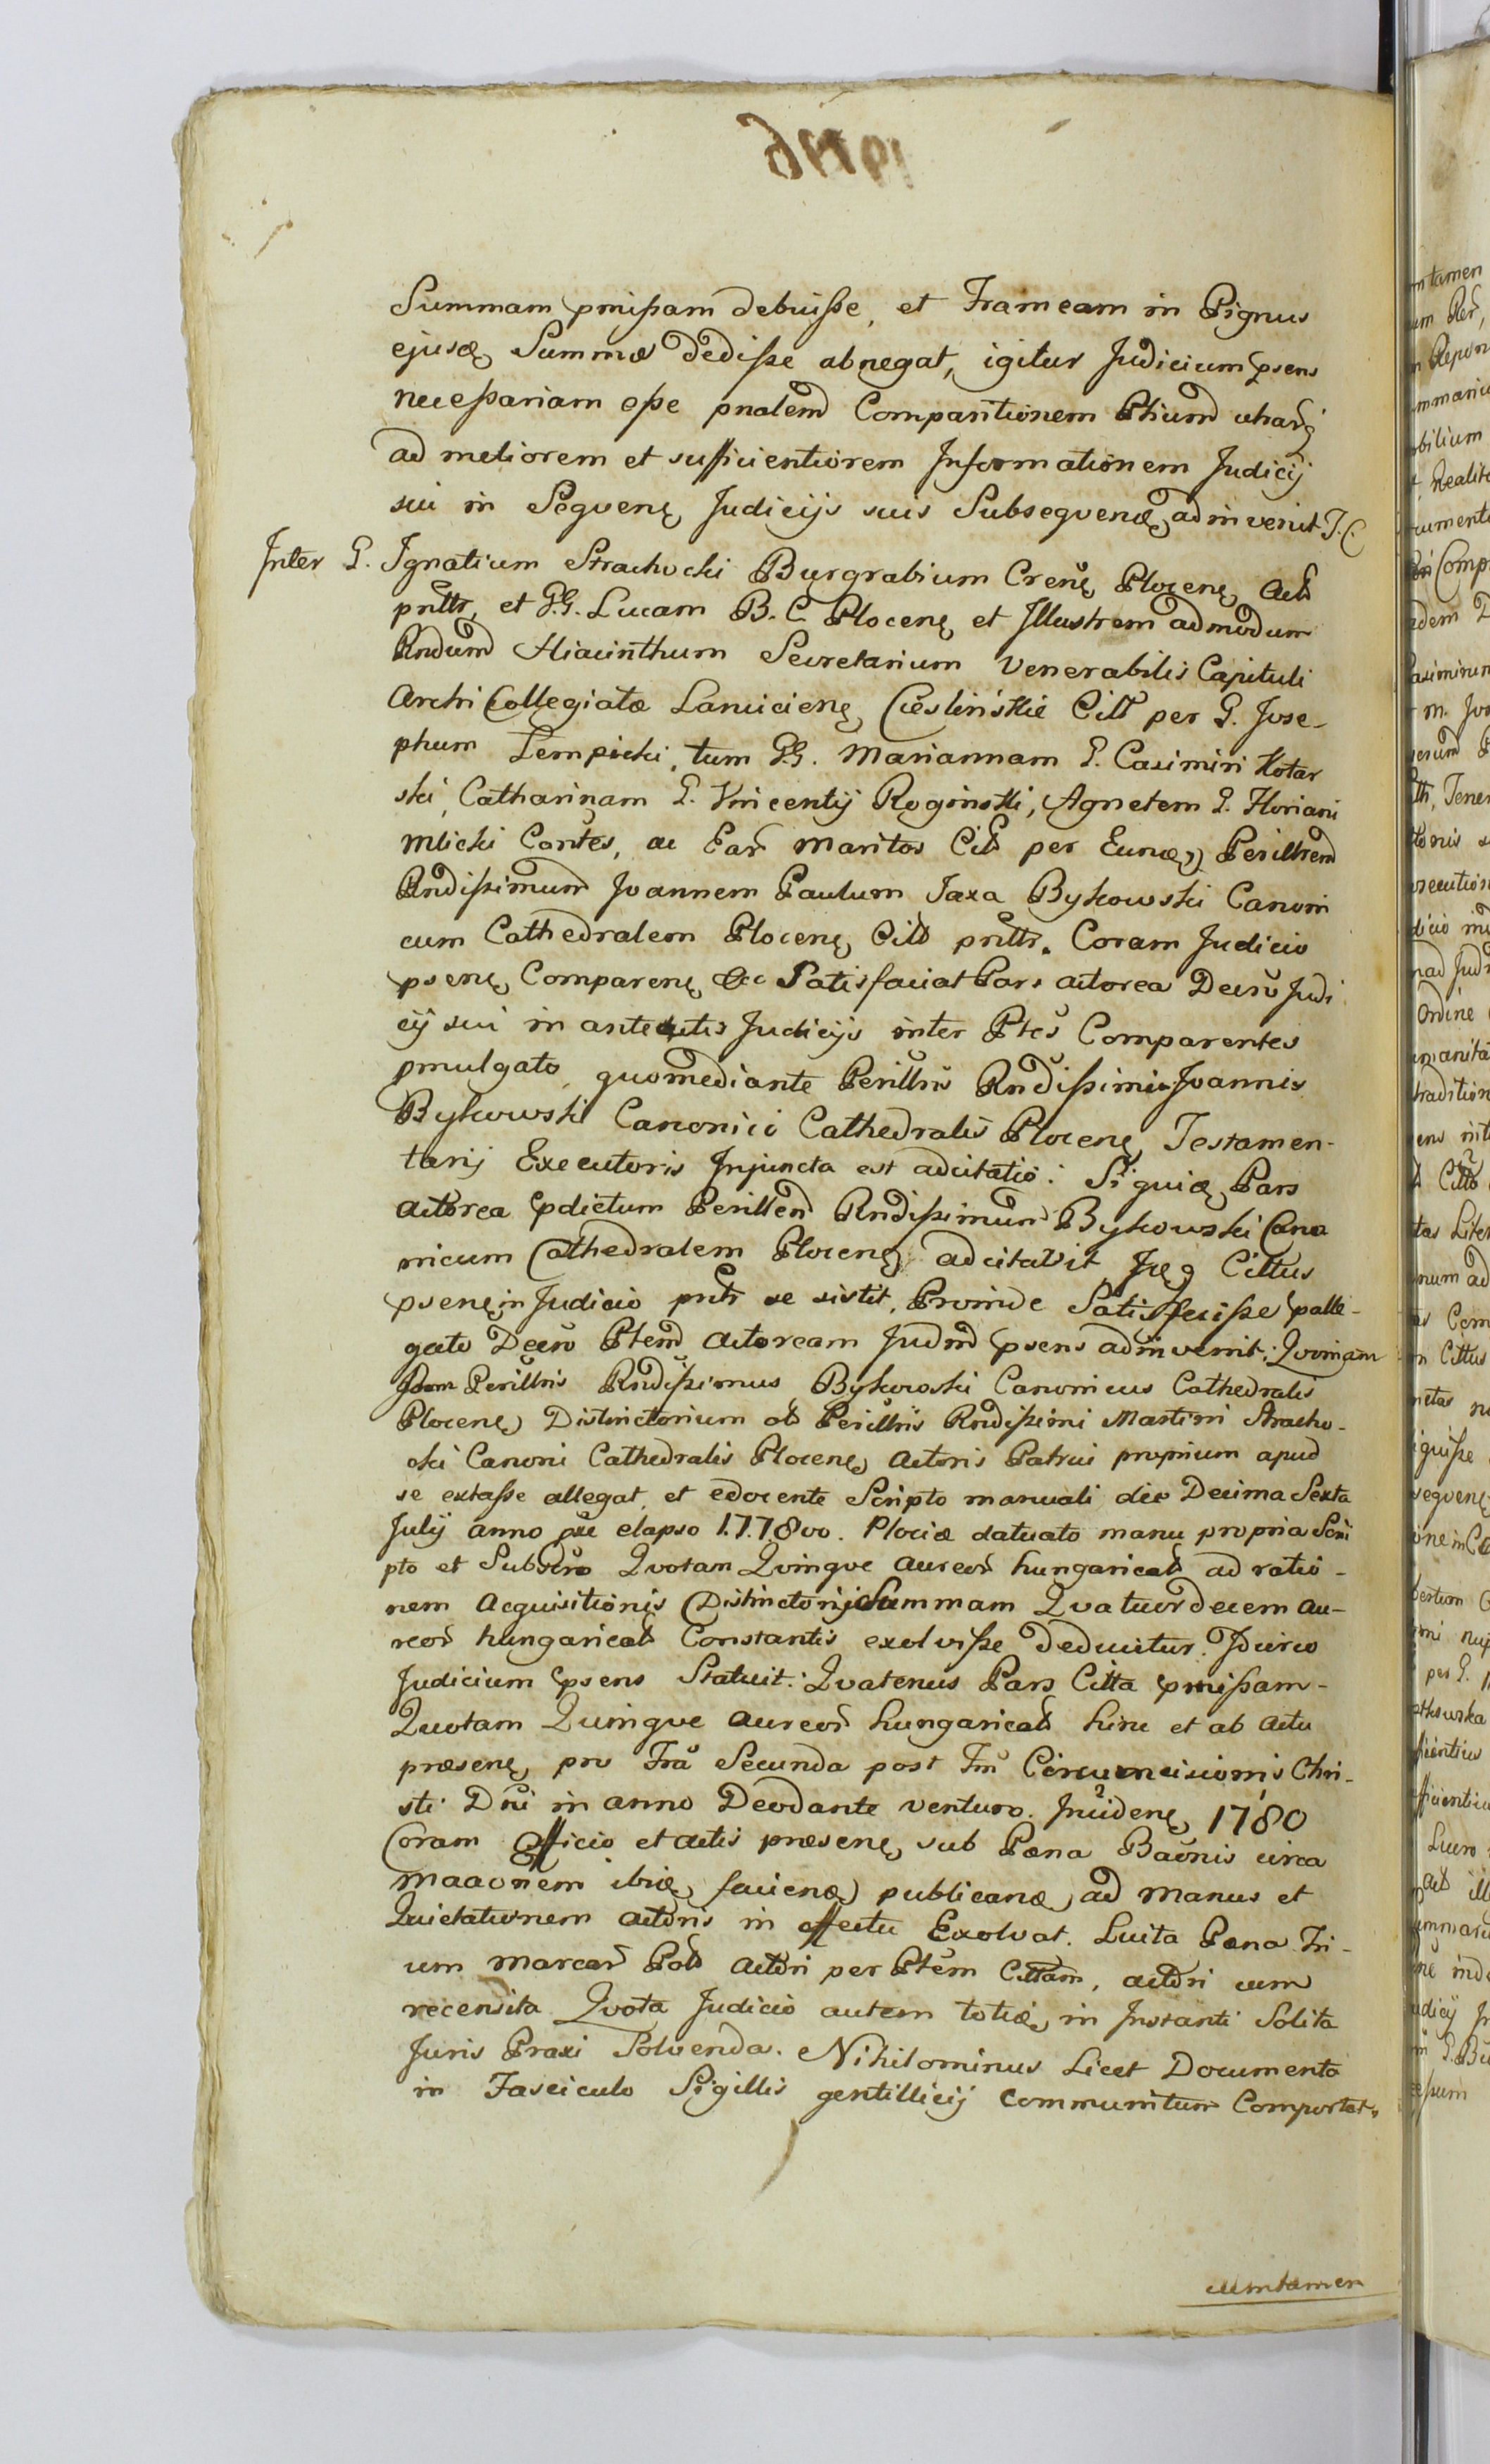 Summam pmißam debuiße, et Frameam in Pignus
ejusdę Summæ dediße abnegat, igitur Judicium psens
neceßariam eße pnalem Comparitionem Ptium utrarq
ad meliorem et sufficientiorem Informationem Judicij
sui in Seqvenę Judicijs suis Subseqvendę adinvenit J. C.
Inter G. Ignatium Strachocki Burgrabium Crenę Plocenę Actt
pnttr, et GG. Lucam B. C. Plocenę et Illustrem admodum
Rndum Hiacinthum Secretarium Venerabilis Capituli
Archi Collegiatæ Lanicienę Cieslińskie Citt per G. Jose-
phum Lempicki, tum GG. Mariannam G. Casimiri Kotar
ski, Catharinam G. Vincentij Roginski, Agnetem G. Floriani
Mlicki Contes, ac Ear Maritos Citt per Eundę Perilltrem
Rndißimum Joannem Paulum Jaxa Bykowski Canoni
cum Cathedralem Plocenę Citt pnttr. Coram Judicio
psenę Comparenę &c Satisfaciat Pars actorea Decro Judi
cij sui in anteactis Judicijs inter Ptes Comparentes
pmulgato, quomediante Perilltris Rndißimi Joannis
Bykowski Canonici Cathedralis Plocenę Testamen-
tarij Executoris Injuncta est adcitatio: Siquidę Pars
actorea pdictum Perilltrem Rndißimum Bykowski Cano
nicum Cathedralem Plocenę adcitavit Isq Cittus
psenę in Judicio pntr se sistit, Proinde Satisfeciße palle-
gato Decro Ptem actoream Judm psens adinvenit: Qvoniam
Idem Perilltris Rndißimus Bykowski Canonicus Cathedralis
Plocenę Distinctorium ob Perilltris Rndißimi Martini Stracho-
cki Canoni Cathedralis Plocenę actoris Patrui proprium apud
se extaße allegat, et edocente Scripto manuali die Decima Sexta
Julij anno pxe elapso 1778vo. Plociæ datuato manu propria Scri
pto et Subscro Qvotam Qvinqve aureor hungarical ad ratio-
nem Acquisitionis Distinctorij Summam Qvatuordecem au-
reor hungarical Constantis exolviße deducitur. Idcirco
Judicium psens Statuit: Qvatenus Pars Citta pmißam-
Quotam Quinqve aureor hungarical hinc et ab actu
præsenę pro Fra Secunda post Fm Circumcisionis Chri-
sti Dni in anno Deodante venturo. Incidenę 1780
Coram officio et actis præsenę sub Pæna Baonis circa
Maaonem ibidę faciendę publicandę ad manus et
Quietationem actoris in effectu Exolvat. Luita Pæna Tri-
um Marcar Poll actori per Ptem Cittam, actori cum
recensita Qvota Judicio autem totidę in Instanti Solita
Juris Praxi Solvenda. Nihilominus Licet Documenta
in Fasciculo Sigillis gentillicij communitum Comportat.
cumtamen